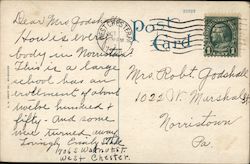 Dear Mrs Godshall
How is every
body in Norristown
This is a large
school has an
enrollment of about
twelve hundred &
fifty. And some
were turned away
Lovingly Emily
West Chester.
Post
Card
1
Mrs. Robt. Godshall
1022 W. Marshall
Norristown
Pa.